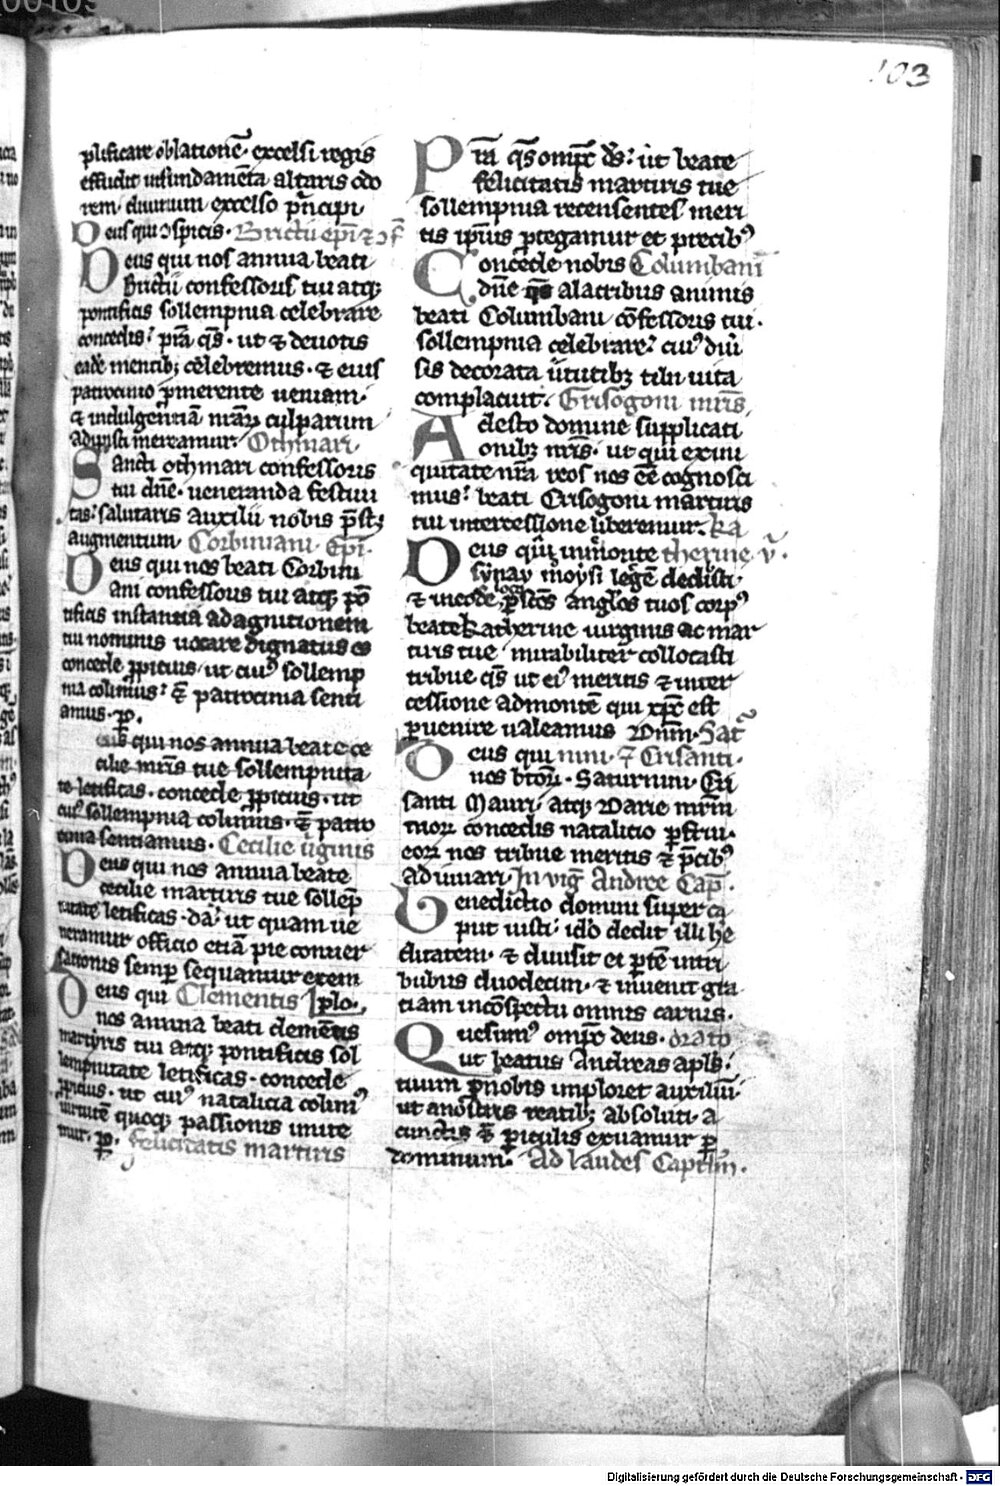 103
plificare oblationē. excelsi regis
effudit in fundamēta altaris odo
rem. diuinum excelso pͥncipi.
Deus qui ↄspicis. Brictii ep̄i ⁊ ↄf̄
Deus qui nos annua beati
Brictii confessoris tui atqꝫ
pontificis sollempnia celebrare
concedis. p̄ra q̄s. ut ⁊ deuotis
eadē mentibꝫ celebremus. ⁊ eius
patrocinio ꝓmerente ueniam.
⁊ indulgentiā nr̄aꝝ culparum
adipisci mereamur. Othmari.
Sancti othmari confessoris
tui dn̄e. ueneranda festiui
tas. salutaris auxilii nobis p̄stꝫ
augmentum. Corbiniani Ep̄i.
Deus qui nos beati Corbini
ani confessoris tui atqꝫ pō
tificis instantia ad agnitionem
tui nominis uocare dignatus es
concede ꝓpicius. ut cuiꝰ sollemp
nia colimus. ei patrocinia senti
amus. ꝑ.
Deus qui nos annua beate ce
cilie mr̄is tue sollempnita
te letificas. concede ꝓpicius. ut
cuiꝰ sollempnia colimus. ei patro
cinia sentiamus. Cecilie ūginis
Deus qui nos annua beate
cecilie martiris tue sollēp
nitate letificas. da. ut quam ue
neramur officio etiā pie conuer
sationis semꝑ sequamur exem
Deus qui Clementis plo.
nos annua beati clemētis
martyris tui atqꝫ pontificis sol
lempnitate letificas. concede
ꝓpicius. ut cuiꝰ natalicia colimꝰ
uirtutē quoqꝫ passionis imite
mur. ꝑ. Felicitatis martiris
Pr̄a q̄s omp̄c ds̄. ut beate
felicitatis martiris tue
sollempnia recensentes meri
tis ipsius ꝓtegamur et precibꝰ
Concede nobis Columbani
dn̄e q̄s alacribus animis
beati Columbani cōfessoris tui.
sollempnia celebrare. cuiꝰ diūi
sis decorata ūtutibꝫ tibi uita
complacuit. Grisogoni mr̄is
Adesto domine supplicati
onibꝫ nr̄is. ut qui ex ini
quitate nr̄a reos nos eē cognosci
mus. beati Crisogoni martiris
tui intercessione liberemur. Ka
Deus qui in monte therine ū.
synay moysi legē dedisti.
⁊ in eodē loco ꝑ sc̄os anglos tuos corpꝰ
beate Katherine uirginis ac mar
tiris tue mirabiliter collocasti
tribue q̄s ut eiꝰ meritis ⁊ inter
cessione ad montē qui xp̄c est
ꝑuenire ualeamus Dn̄m. Sat
Deus qui nini. ⁊ Crisanti.
nos btōꝝ. Saturnini. Cri
santi Mauri. atqꝫ Darie mr̄m
tuoꝝ concedis natalicio ꝑfrui.
eoꝝ nos tribue meritis ⁊ p̄cibꝰ
adiuuari. In viḡ Andree Cap̄.
Benedictio domini super ca
put iusti. ideo dedit illi he
ditatem. ⁊ diuisit ei ꝑtē in tri
bubus duodecim. ⁊ inuenit gra
tiam in cōspectu omnis carnis.
Quesumꝰ omp̄c deus. oratio
ut beatus Andreas apl̄s.
tuum ꝓ nobis imploret auxiliū.
ut a nostris reatibꝫ absoluti. a
cunctis ei ꝑiculis exuamur ꝑ
dominum. Ad laudes Capitlm̄.
Digitalisierung gefördert durch die Deutsche Forschungsgemeinschaft - DFG